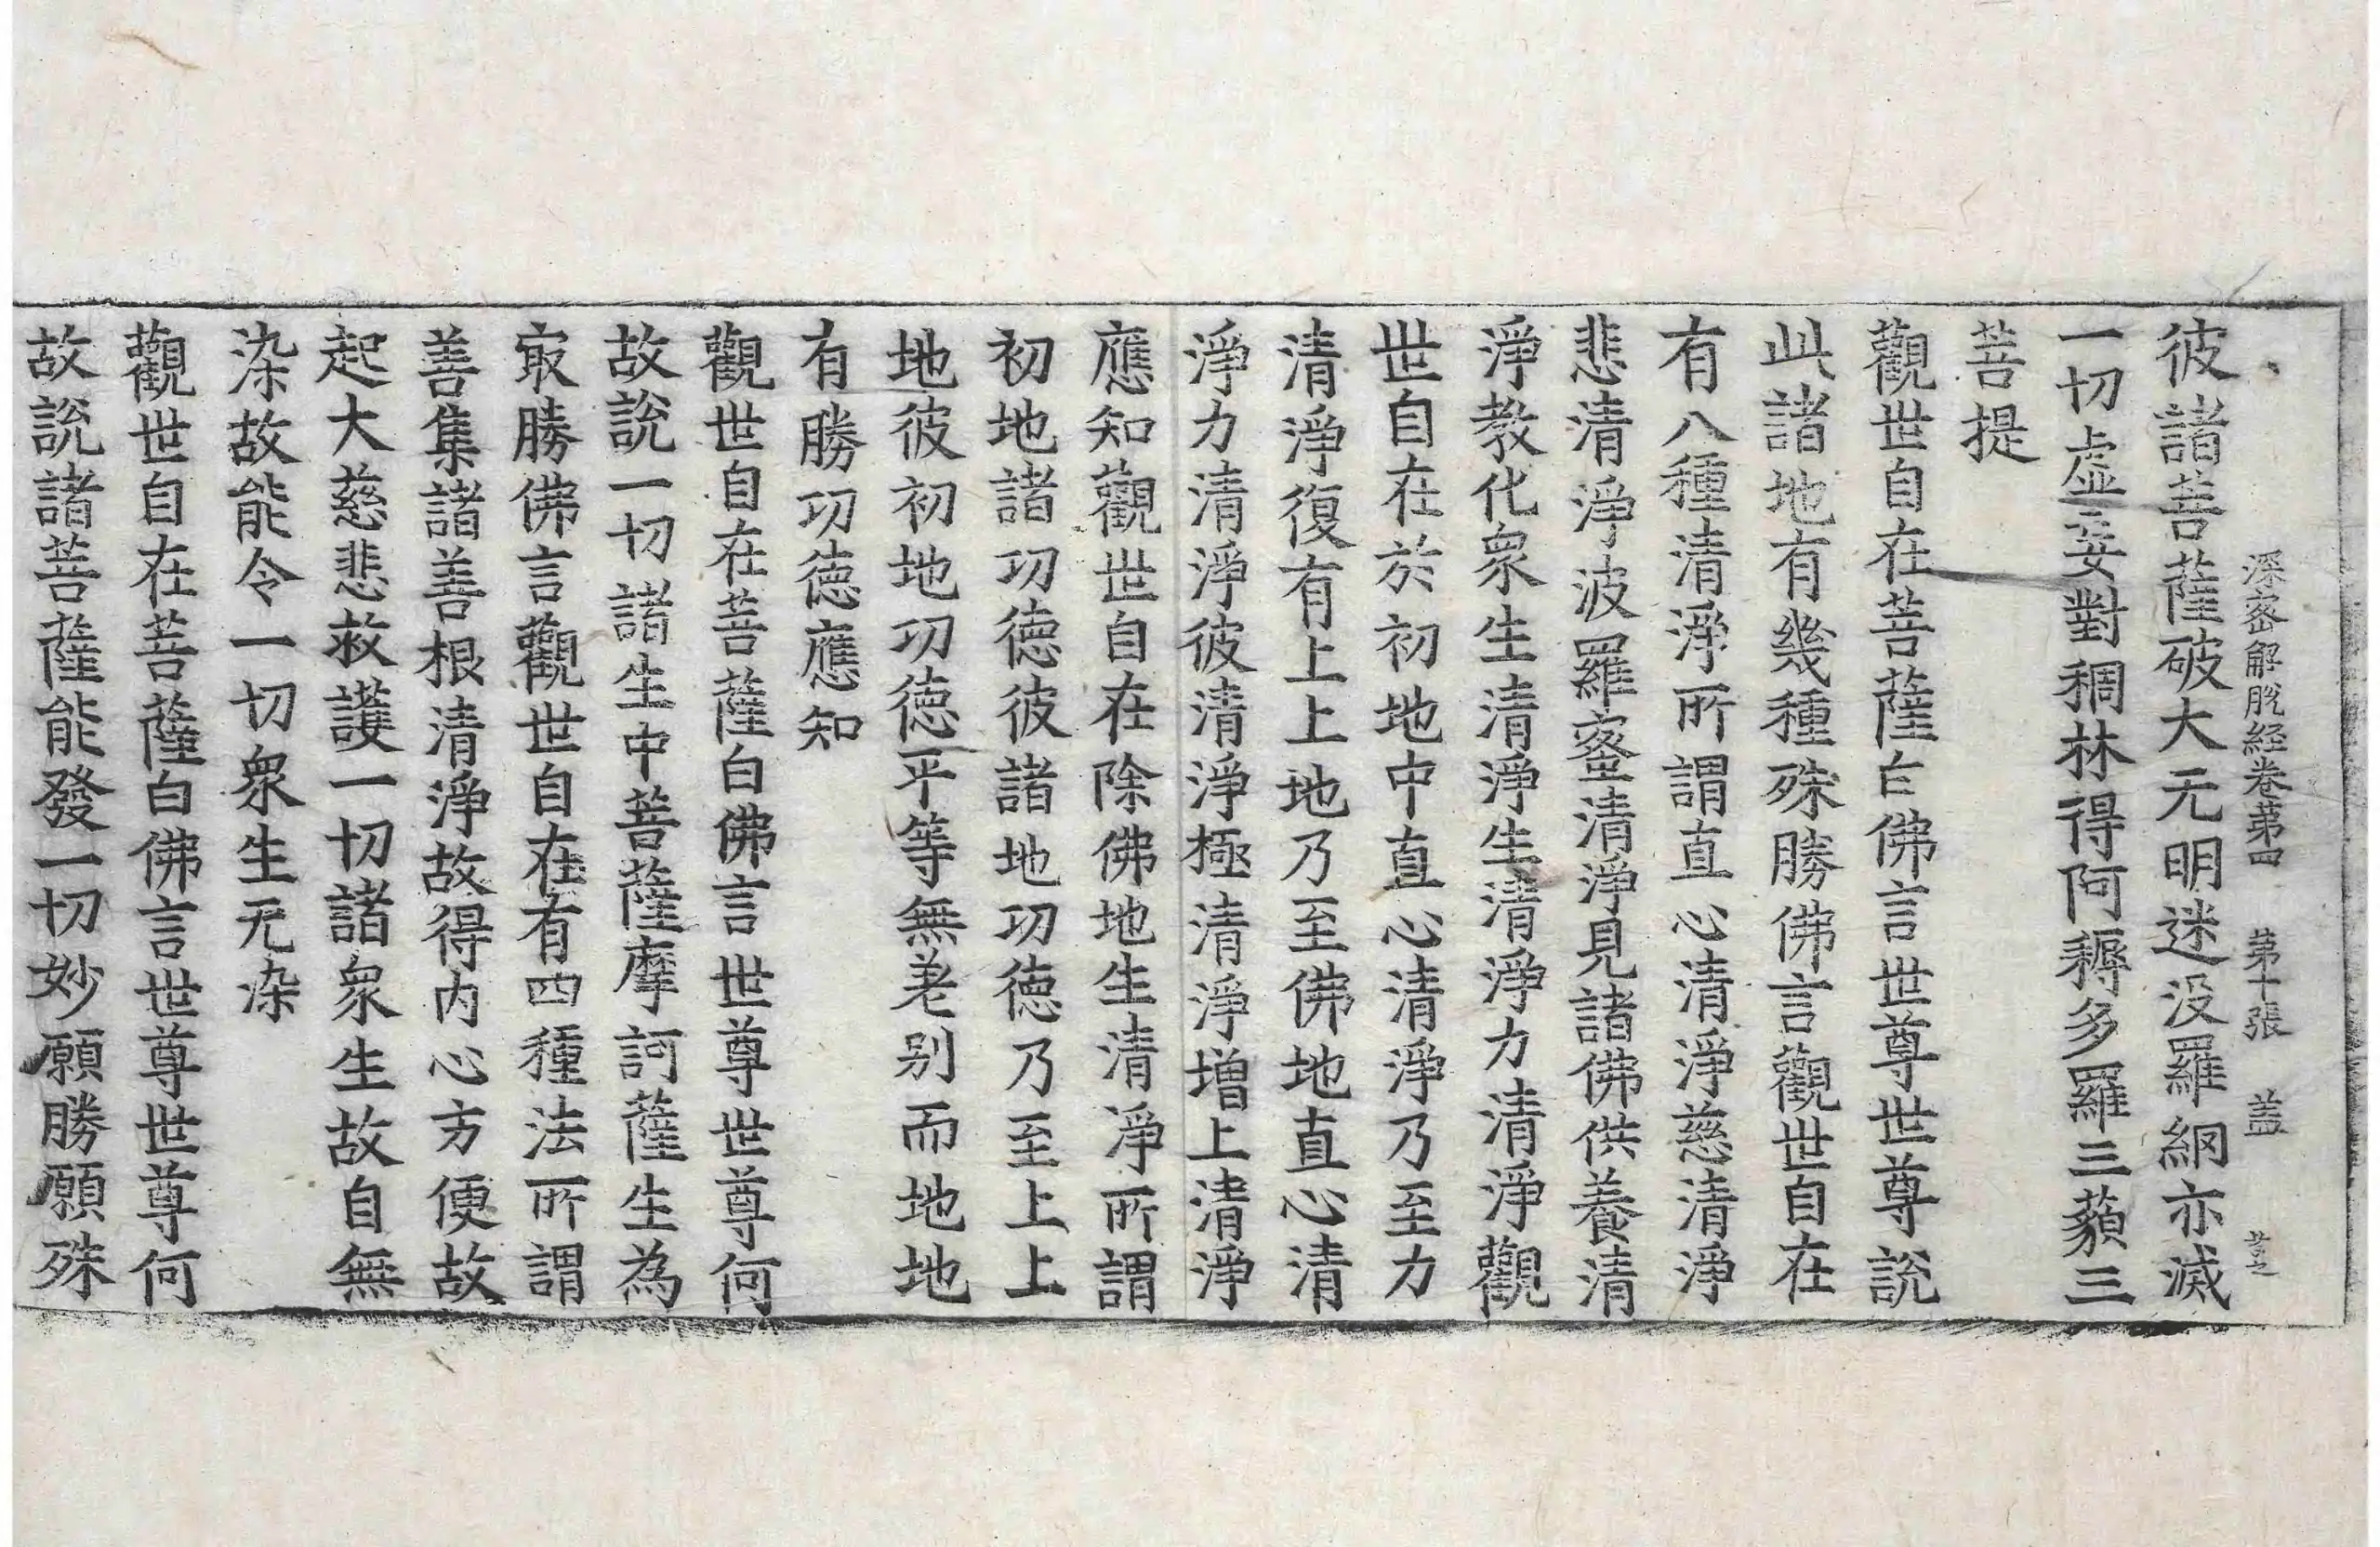 深密解脫経卷苐四 苐十張 盖
彼諸菩薩破大无明迷没羅網亦滅
一切虛妄對稠林得阿耨多羅三藐三
菩提
觀世自在菩薩白佛言世尊世尊說
此諸地有幾種殊勝佛言觀世自在
有八種清淨所謂直心清淨慈清淨
悲清淨波羅蜜清淨見諸佛供養清
淨教化衆生清淨生清淨力清淨觀
世自在於初地中直心清淨乃至力
清淨復有上上地乃至佛地直心清
淨力清淨彼清淨極清淨增上清淨
應知觀世自在除佛地生清淨所謂
初地諸功德彼諸地功德乃至上上
地彼初地功德平等無差别而地地
有勝功德應知
觀世自在菩薩白佛言世尊世尊何
故說一切諸生中菩薩摩訶薩生為
㝡勝佛言觀世自在有四種法所謂
善集諸善根清淨故得内心方便故
起大慈悲救護一切諸衆生故自無
染故能令一切衆生无染
觀世自在菩薩白佛言世尊世尊何
故說諸菩薩能發一切妙願勝願殊